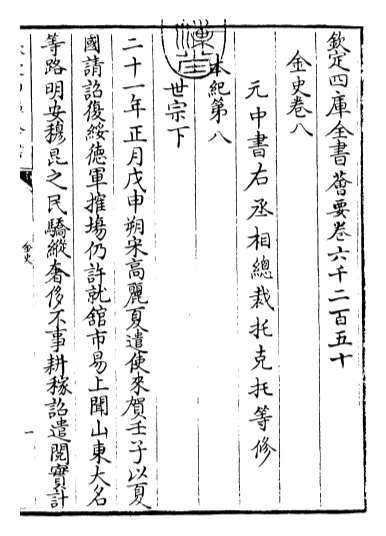 欽定四庫全書薈要卷六千二百五十
金史卷八
元中書右丞相總裁托克托等修
本紀第八
世宗下
二十一年正月戊申朔宋高麗夏遣使來賀壬子以夏
國請詔復綏德軍搉塲仍許就舘市易上聞山東大名
等路明安穆昆之民驕縱奢侈不事耕稼詔遣閱實計
金史
一